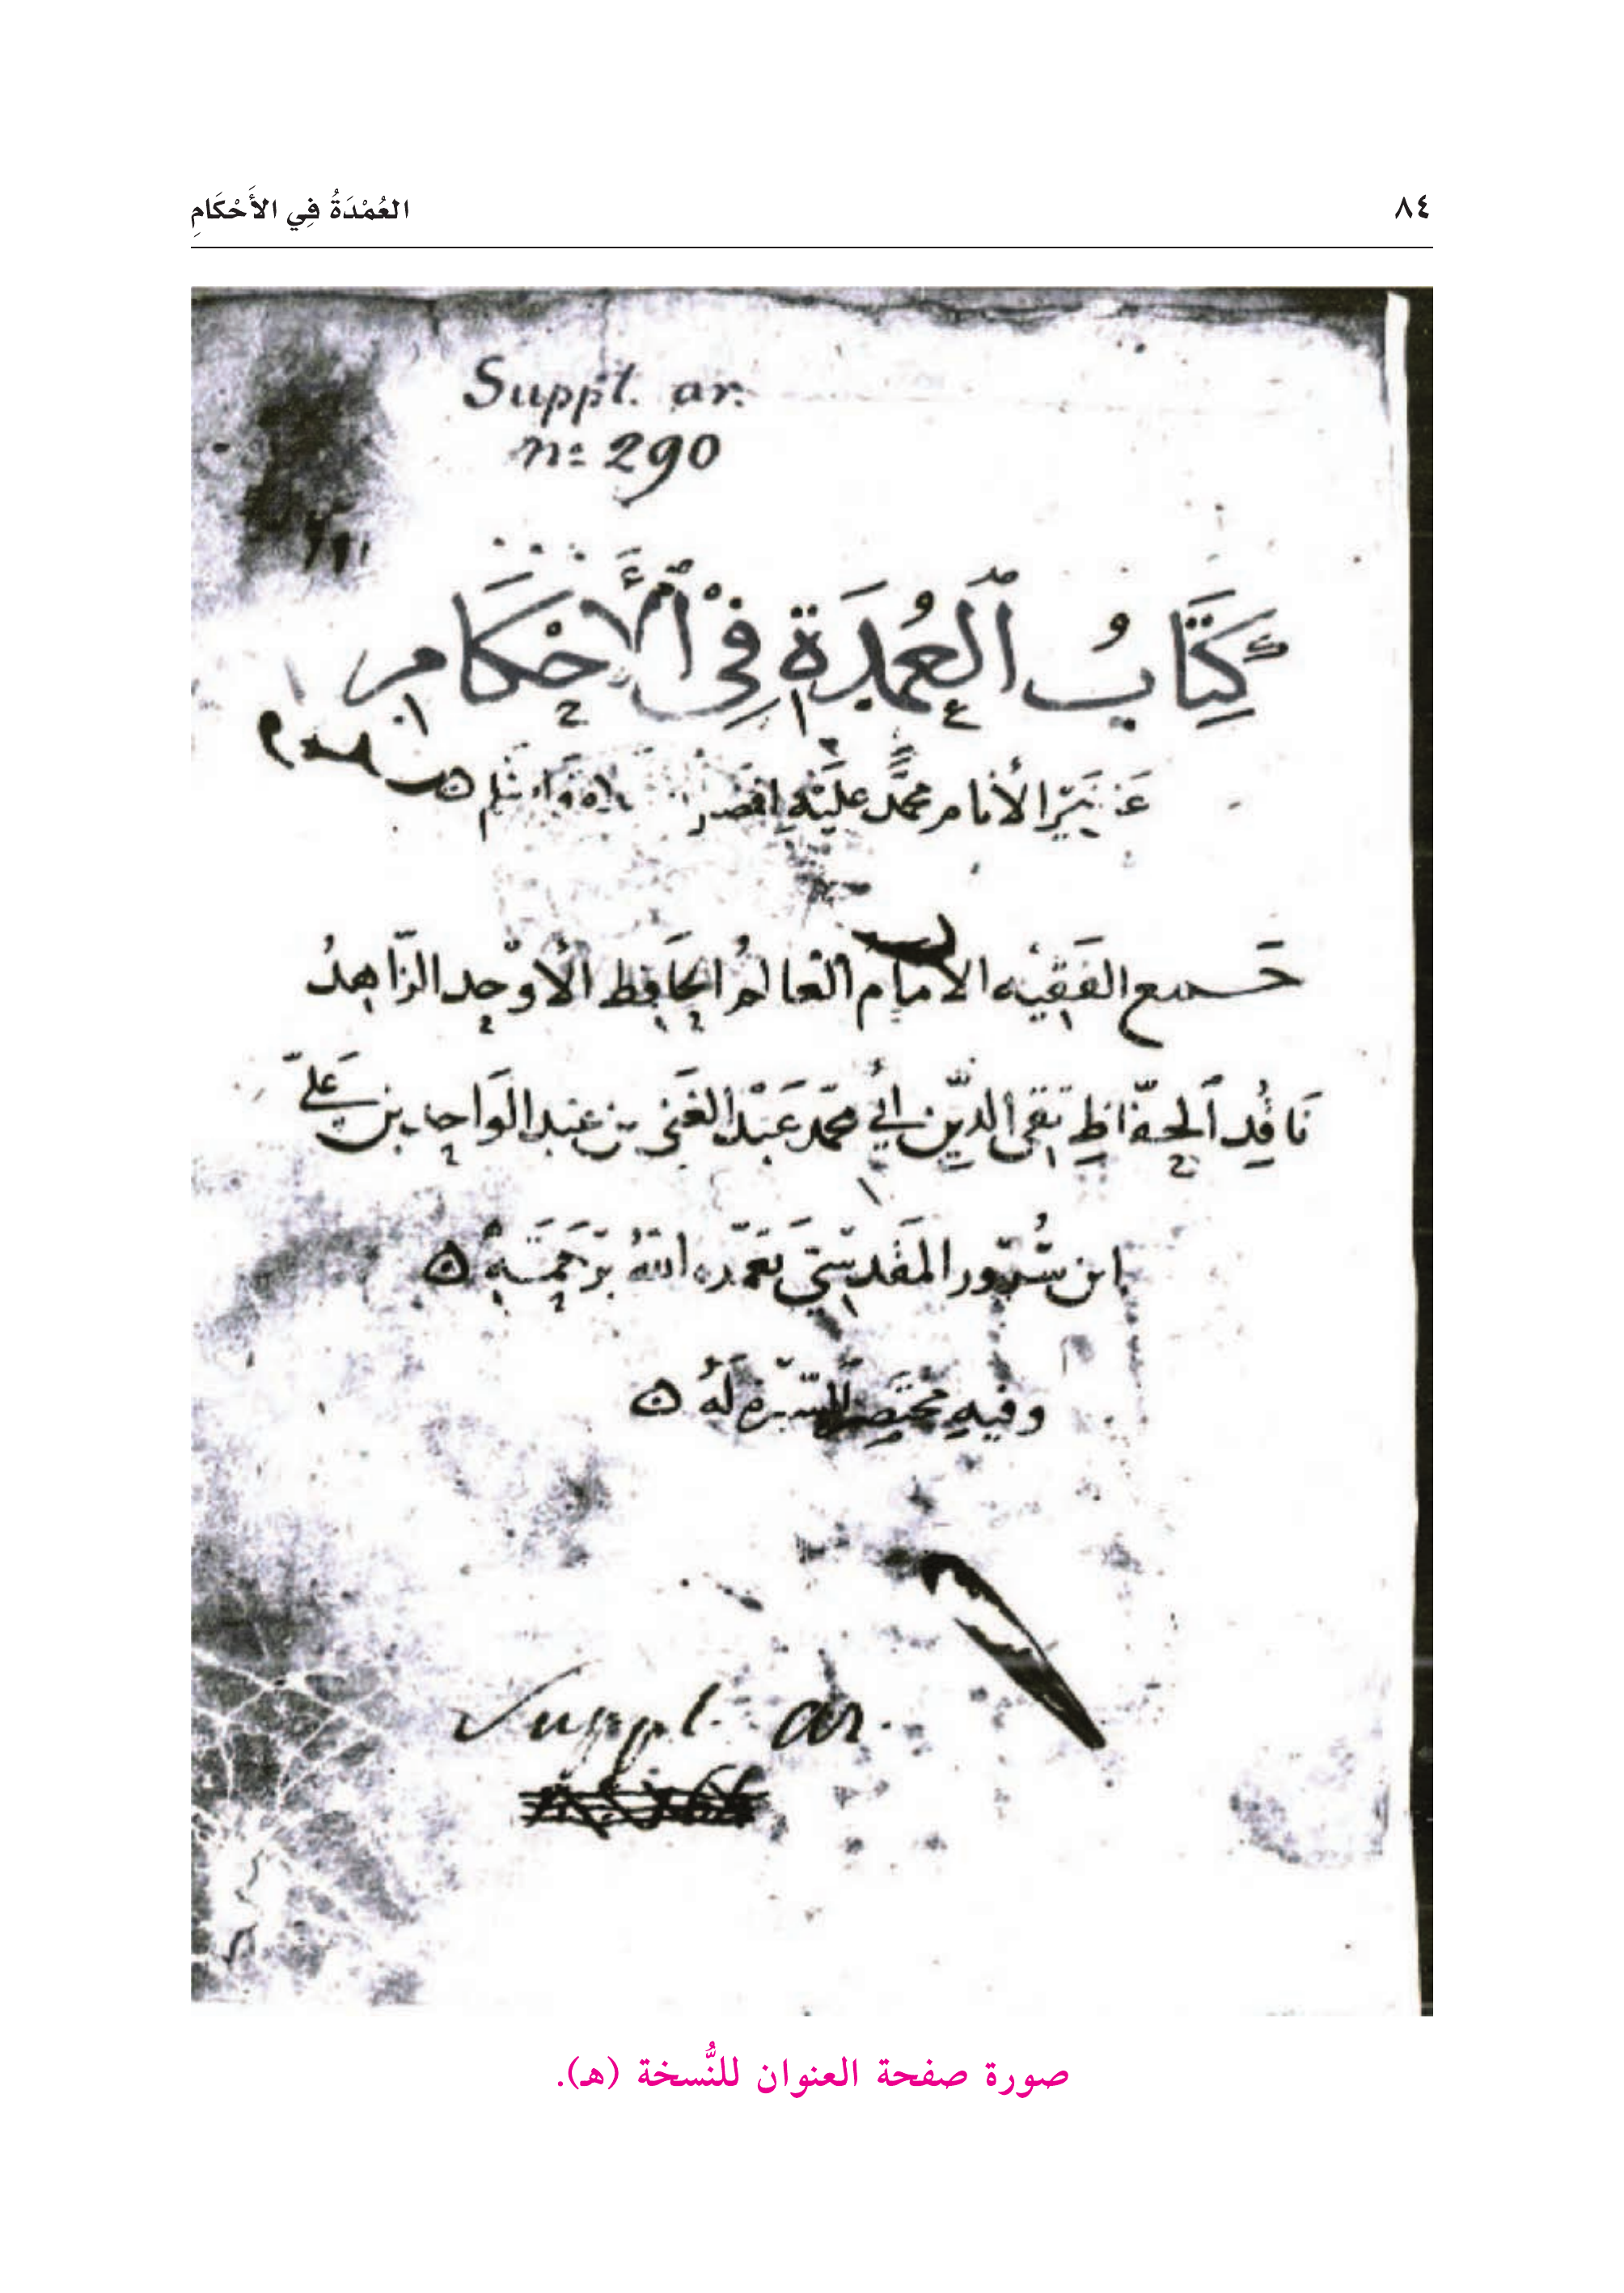 ٨٤ العُمْدَةُ فِي الأَحْكَامِ
Suppl. ar.
nº 290
كِتَابُ ٱلْعُمْدَةِ فِي ٱلْأَحْكَام
عَن خَيْرِ الأَنَام مُحَمَّد عَلَيْهِ افضل
جمع الفَقِيْه الامام العَالم الحَافِظ الأَوْحَد الزَّاهِدُ
نَاقِد ٱلحفّاظِ تقي الدِّين أبي محمّد عَبْد الغَني بن عبد الوَاحِد بن عَليّ
ابن سُرُور المَقدسيّ تغمّده اللهُ برَحمَتِهِ
وفيهِ مختَصر السِّيرة لَهُ
Suppl. ar.
صورة صفحة العنوان للنُّسخة (هـ).